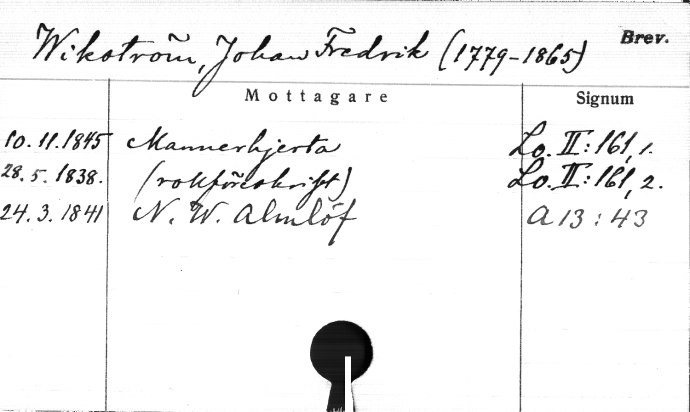 Wikström, Johan Fredrik (1779-1865) Brev.
Mottagare Signum
10.11.1845 Mannerhjerta Lo. II:161,1.
28.5.1838. (rollföreskrift) Lo. II:161,2.
24.3.1841 N. W. Almlöf A13:43